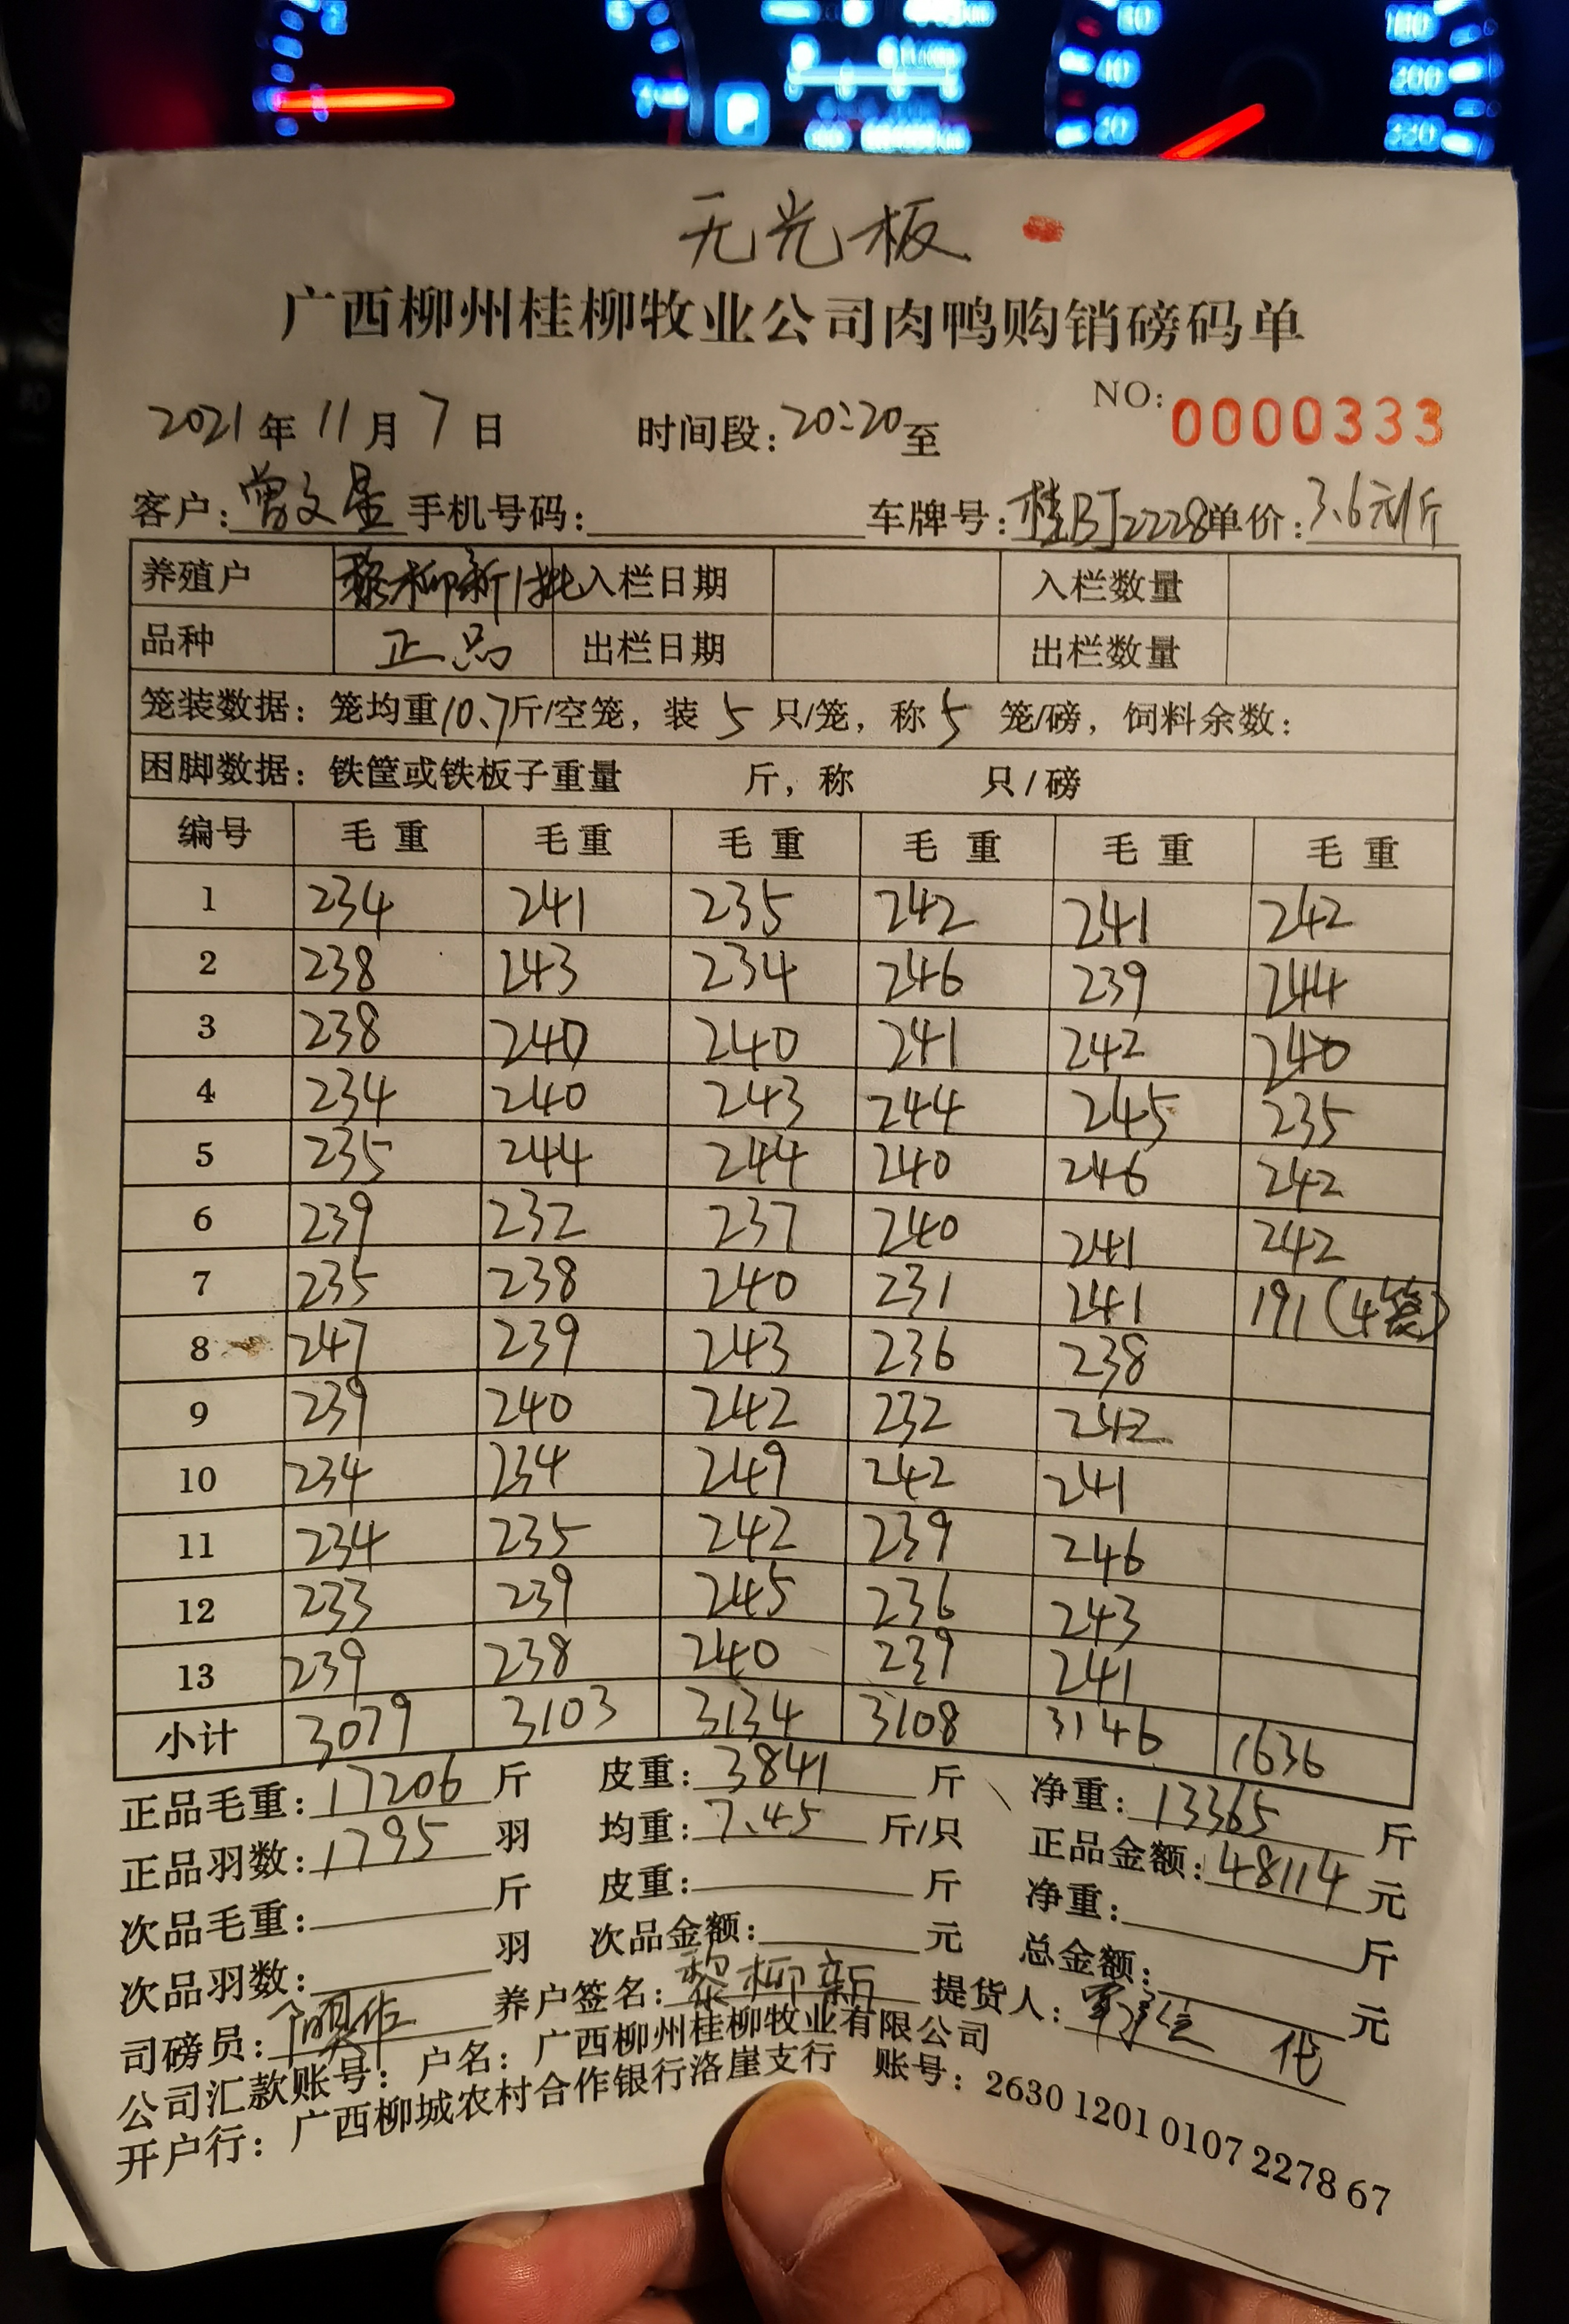 无光板
广西柳州桂柳牧业公司肉鸭购销磅码单
NO: 0000333
2021年 11月 7日 时间段: 20:20至
客户: 曾文星 手机号码: 车牌号: 桂BJ2228 单价: 3.6元/斤
养殖户 黎柳新1批 入栏日期 入栏数量
品种 正品 出栏日期 出栏数量
笼装数据: 笼均重10.7斤/空笼, 装 5 只/笼, 称 5 笼/磅, 饲料余数:
困脚数据: 铁筐或铁板子重量 斤, 称 只/磅
编号 毛重 毛重 毛重 毛重 毛重 毛重
1 234 241 235 242 241 242
2 238 243 234 246 239 244
3 238 240 240 241 242 240
4 234 240 243 244 245 235
5 235 244 244 240 246 242
6 239 232 237 240 241 242
7 235 238 240 231 241 191(4笼)
8 247 239 243 236 238
9 239 240 242 232 242
10 234 234 249 242 241
11 234 235 242 239 246
12 233 239 245 236 243
13 239 238 240 239 241
小计 3079 3103 3134 3108 3146 1636
正品毛重: 17206 斤 皮重: 3841 斤 净重: 13365 斤
正品羽数: 1795 羽 均重: 7.45 斤/只 正品金额: 48114 元
次品毛重: 斤 皮重: 斤 净重: 斤
次品羽数: 羽 次品金额: 元 总金额: 元
司磅员: 养户签名: 黎柳新 提货人: 代
公司汇款账号: 户名: 广西柳州桂柳牧业有限公司
开户行: 广西柳城农村合作银行洛崖支行 账号: 2630 1201 0107 2278 67